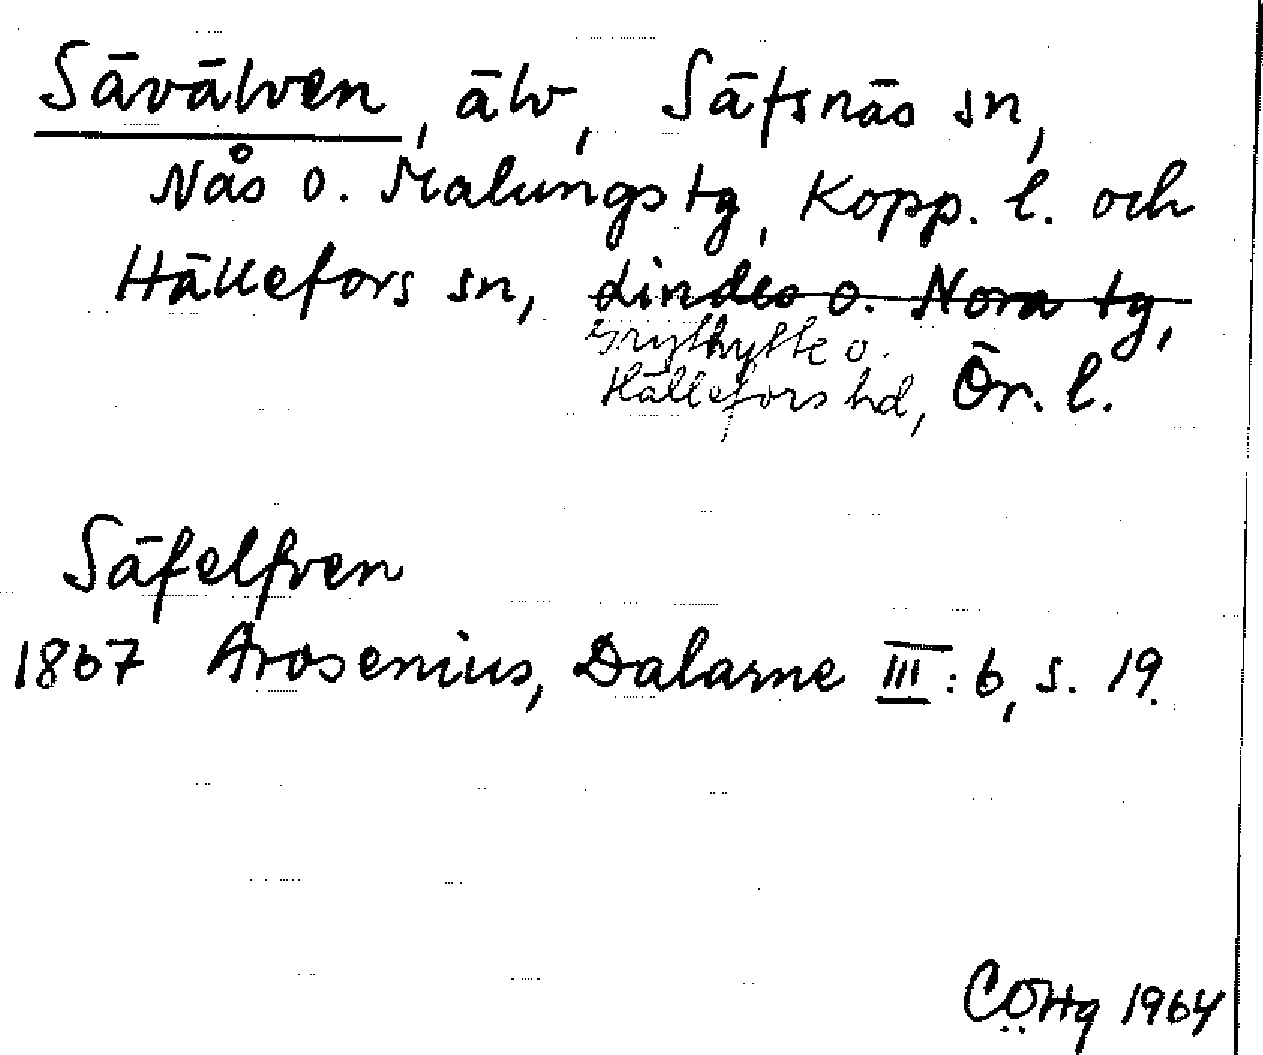 Sävälven, älv, Säfsnäs sn,
Nås o. Malungs tg, Kopp. l. och
Hällefors sn, Lindes o. Nora tg,
Grythytte o.
Hällefors hd, Ör. l.
Säfelfven
1867 Arosenius, Dalarne III: 6, s. 19.
CÖHg 1964